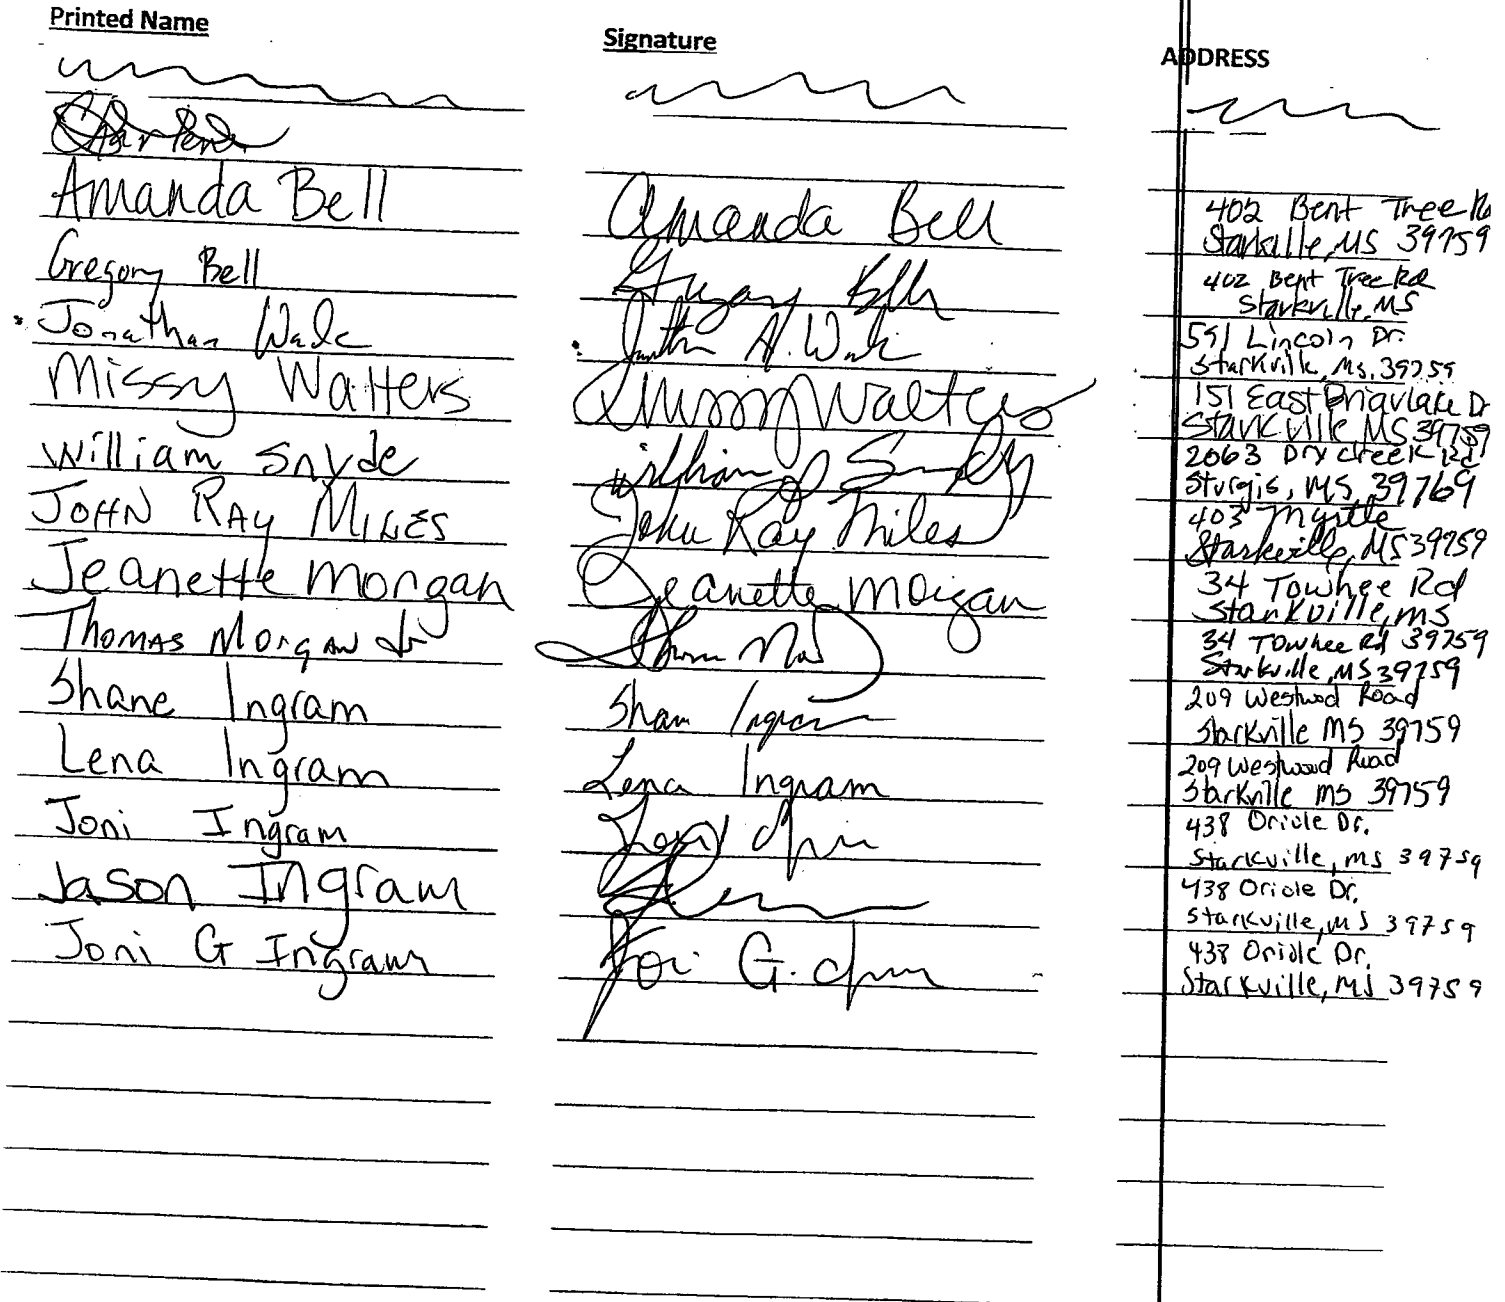 Printed Name Signature ADDRESS
Charlene
Amanda Bell Amanda Bell 402 Bent Tree
Starkville, MS 39759
Gregory Bell Gregory Bell 402 Bent Tree Rd
Starkville, MS
Jonathan A. 591 Lincoln Dr.
Starkville, Ms. 39759
Missy Walters Missy Walters 151 East Briarlake Dr
Starkville MS 39759
William Snyde William Snyde 2063 Dry Creek Rd
Sturgis, MS 39769
JOHN RAY MILES John Ray Miles 403 Myrtle
Starkville, MS 39759
Jeanette Morgan Jeanette Morgan 34 Towhee Rd
Starkville, MS
THOMAS MORGAN Jr 34 Towhee Rd 39759
Starkville, MS 39759
Shane Ingram Shane Ingram 209 Westwood Road
Starkville MS 39759
Lena Ingram Lena Ingram 209 Westwood Road
Starkville MS 39759
Joni Ingram Joni 438 Oriole Dr.
Starkville, MS 39759
Jason Ingram 438 Oriole Dr.
Starkville, MS 39759
Joni G Ingram Joni G. 438 Oriole Dr.
Starkville, MS 39759